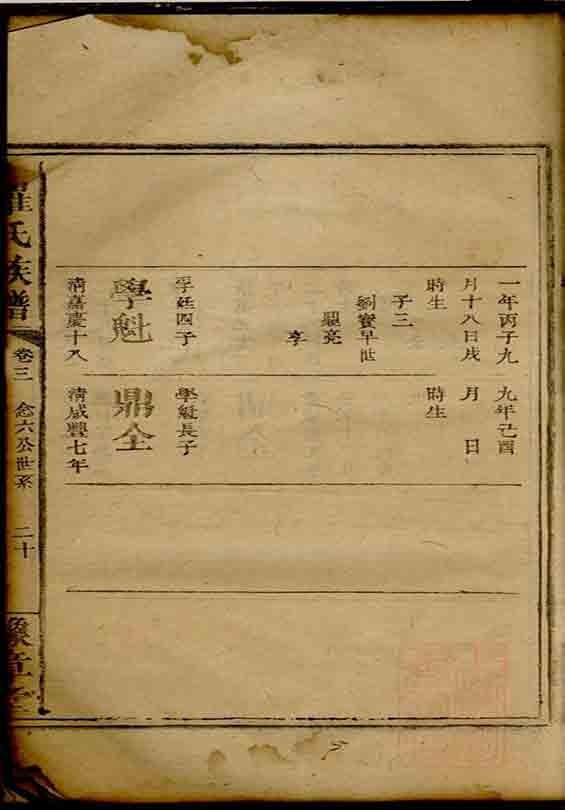 一年丙子九
月十八日戌
時生
子三
劉寳早世
鼎亮
享
學廷四子
學魁
清嘉慶十八
九年己酉
月 日
時生
學魁長子
鼎全
清咸豐七年
羅氏族譜
卷三 念六公世系 二十
豫章堂